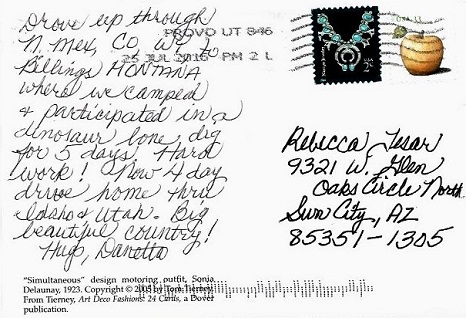 Drove up through
N. Mex, CO, WY, to
Billings MONTANA
where we camped
& participated in a
dinosaur bone dig
for 5 days. Hard
work! Now 4 day
drive home thru
Idaho & Utah. Big
beautiful country!
Hugs, Danetta
PROVO UT 846
25 JUL 2015 PM 2 L
USA
Rebecca Tesar
9321 W. Glen
Oaks Circle North
Sun City, AZ
85351-1305
"Simultaneous" design motoring outfit, Sonia
Delaunay, 1923. Copyright © 2005 by Tom Tierney.
From Tierney, Art Deco Fashions: 24 Cards, a Dover
publication.